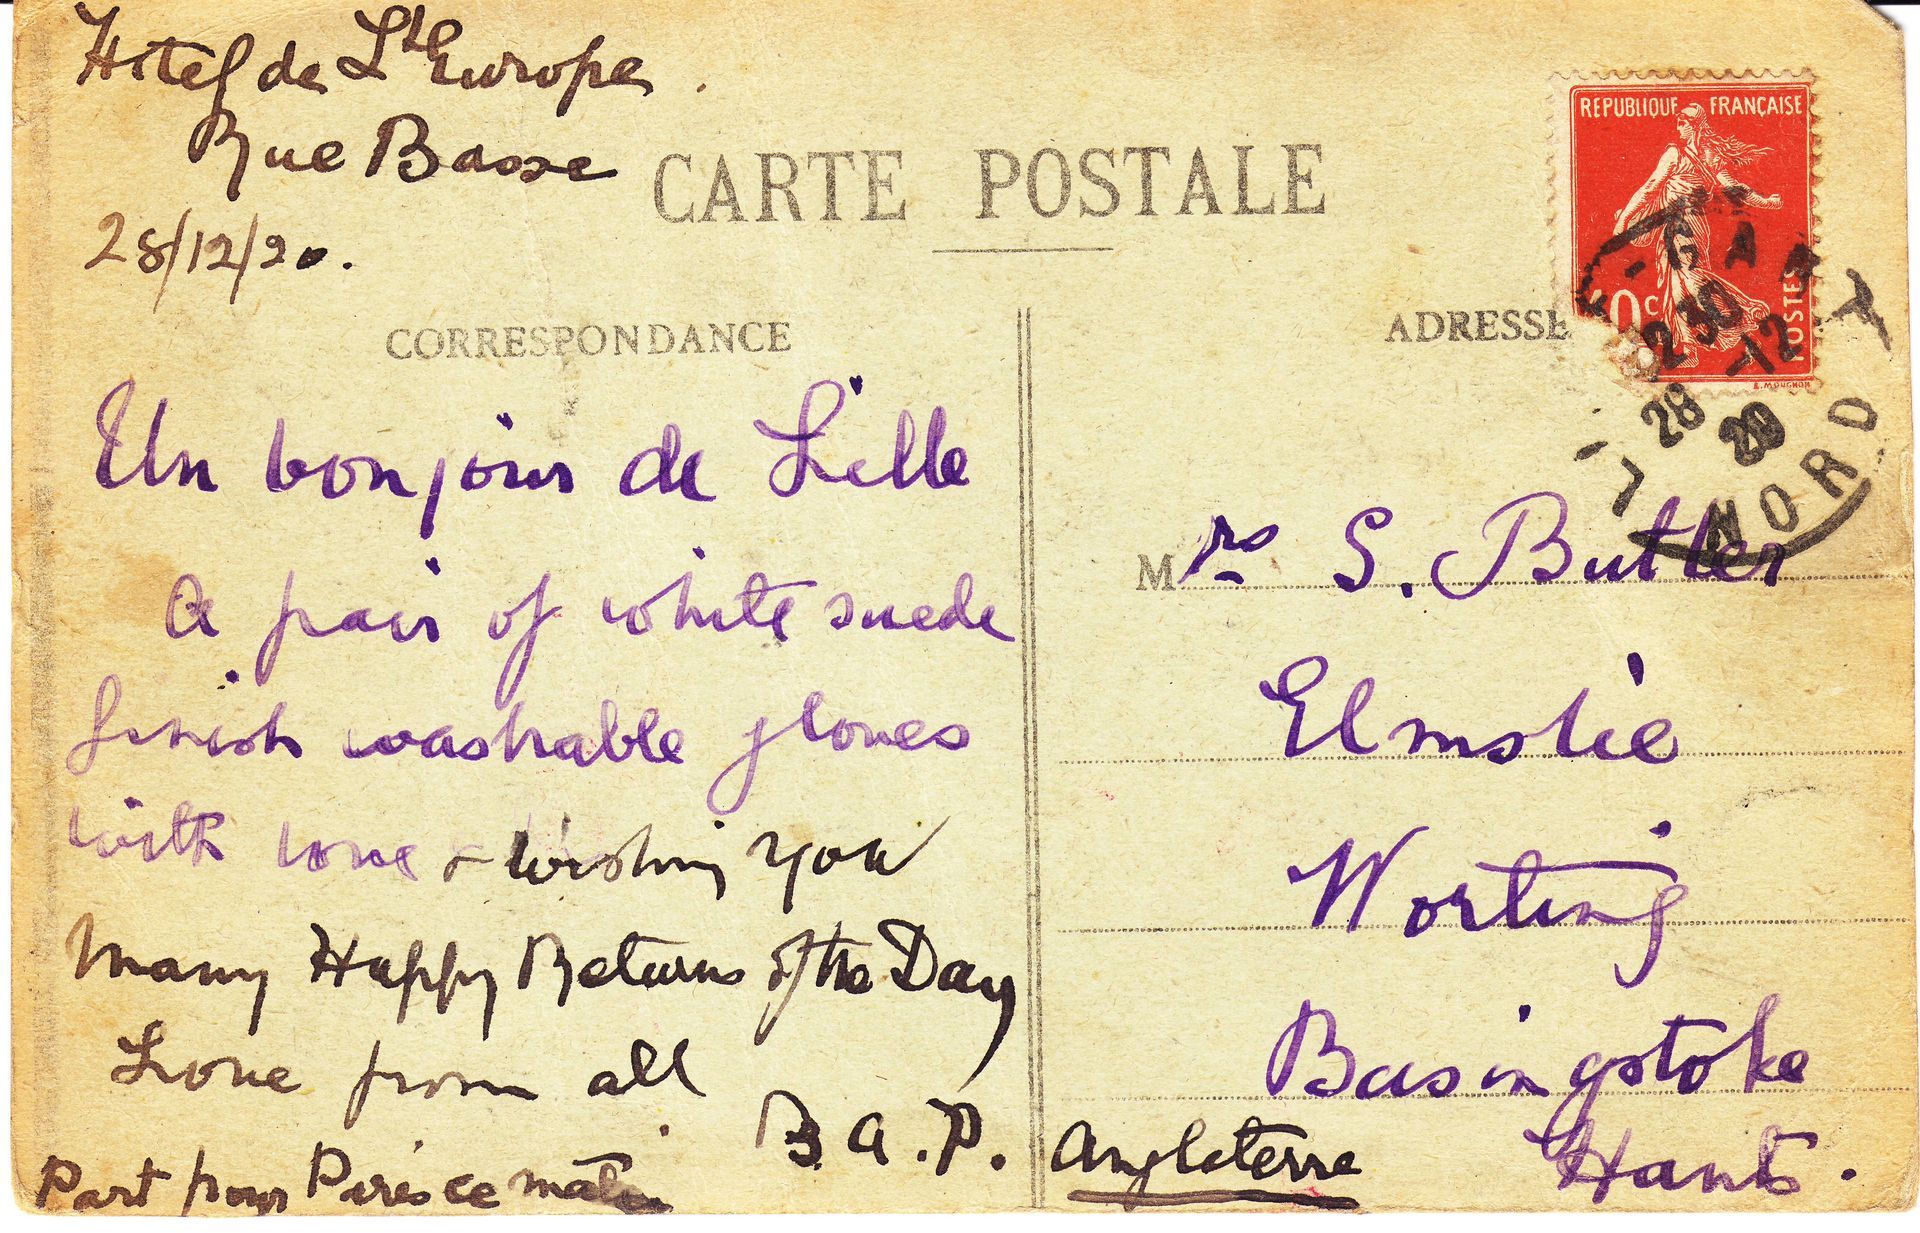 Hotel de L'Europe.
Rue Basse
28/12/20.
CARTE POSTALE
REPUBLIQUE FRANÇAISE
10c
POSTES
E. MOUCHON
- GARE
2 30
28 - 12
20
NORD
CORRESPONDANCE
ADRESSE
Un bonjour de Lille
A pair of white suede
finish washable gloves
with love & wishing you
Many Happy Returns of the Day
Love from all
B. A. P.
Part pour Paris ce matin
Mrs S. Butler
Elmslie
Worting
Basingstoke
Hants.
Angleterre